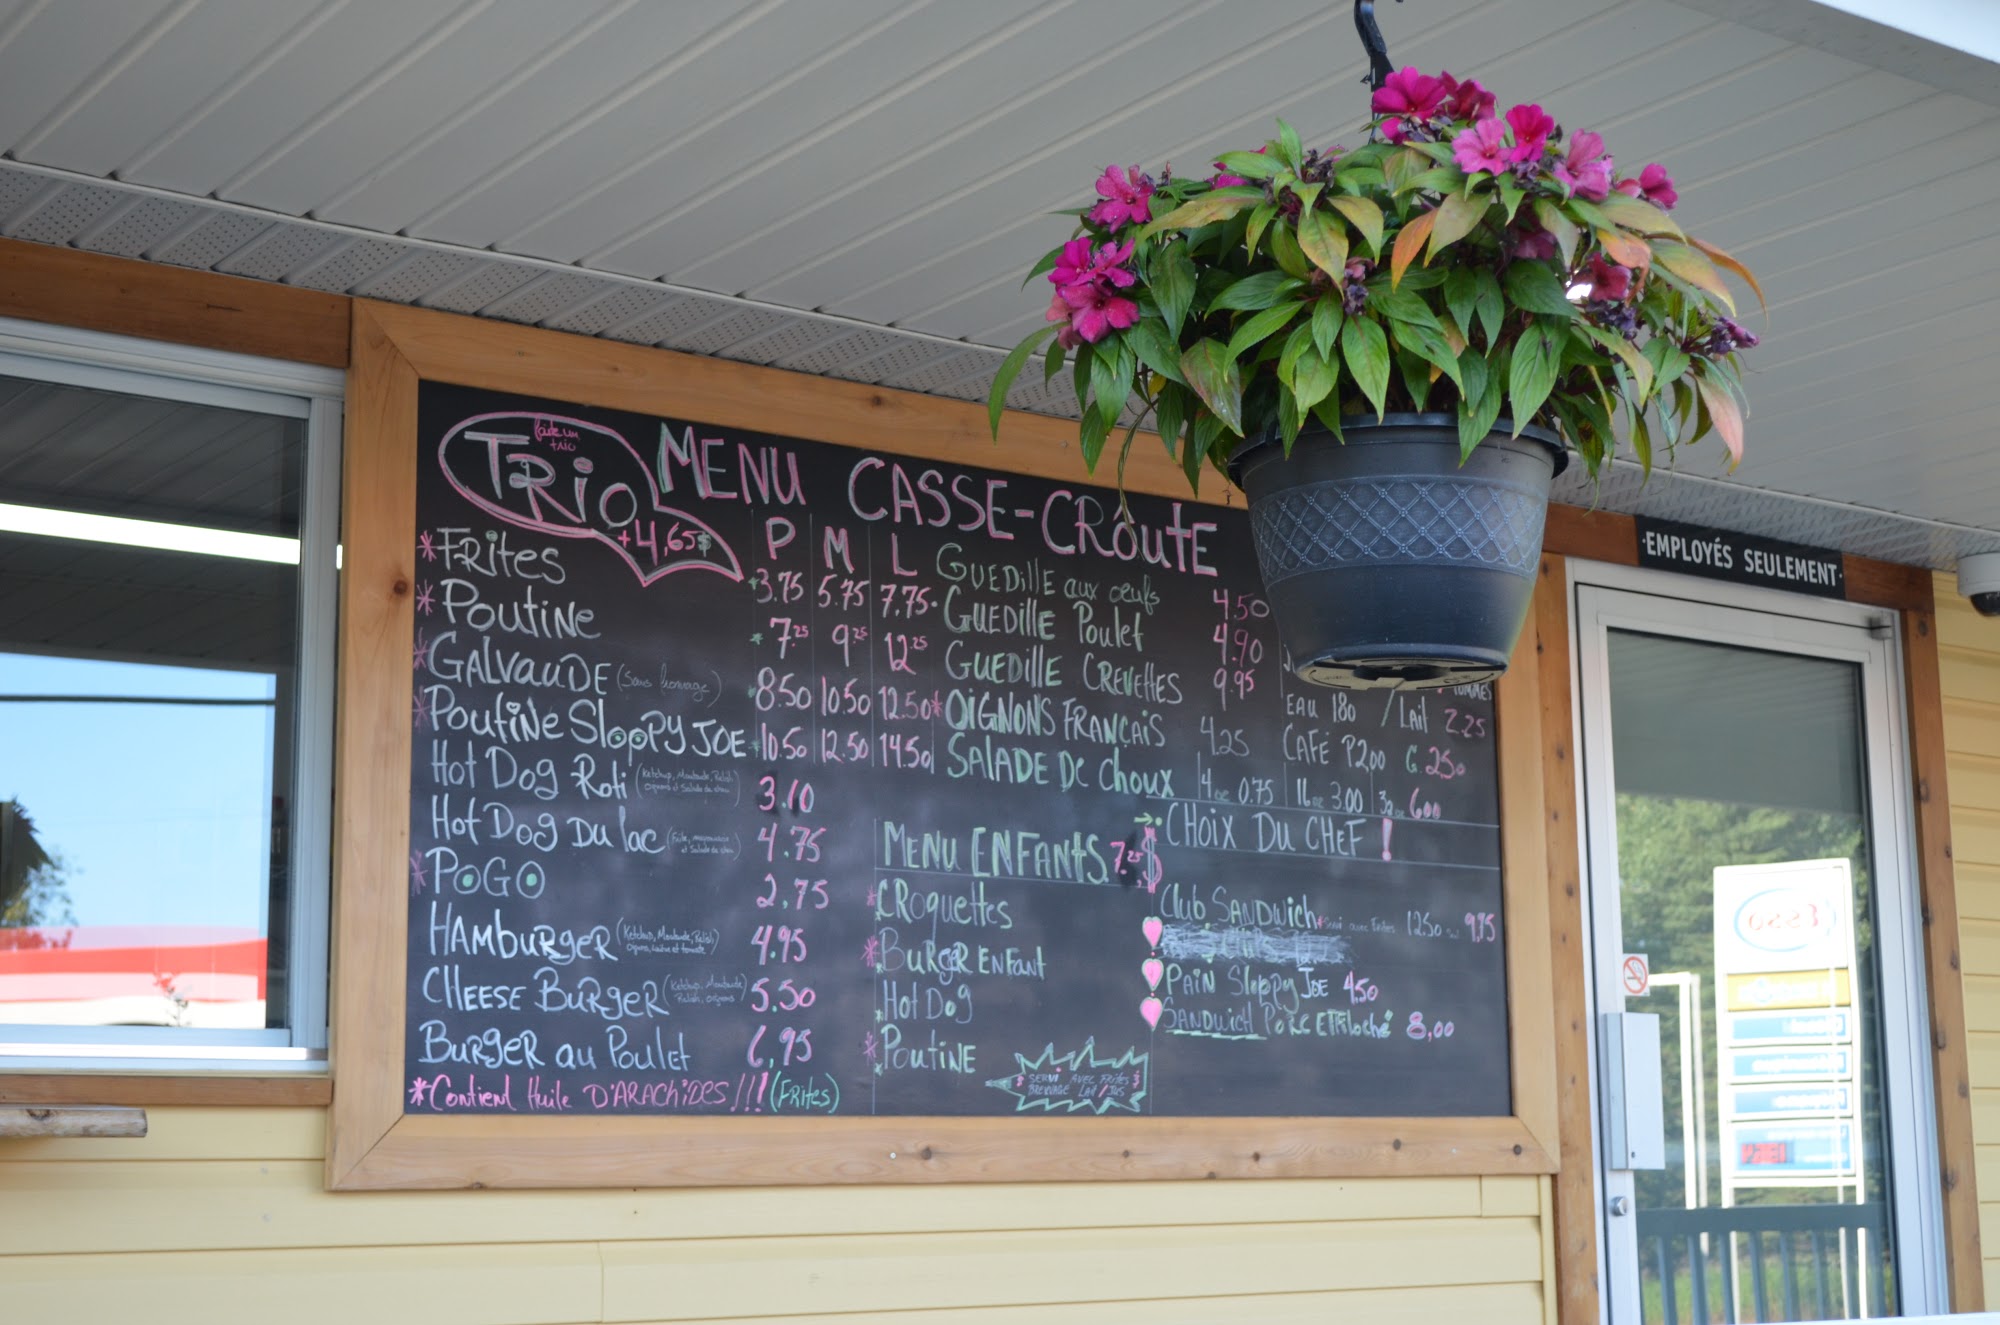 faite un
trio
TRIO
+4,65$
MENU CASSE-CRÔUTE
P M L
*FRITES 3.75 5.75 7.75
*POUTINE 7.25 9.25 12.25
*GALVAUDE (Sans fromage) 8.50 10.50 12.50
*POUTINE SLOPPY JOE 10.50 12.50 14.50
HOT DOG Roti (Ketchup, Moutarde, Relish 3.10
Oignons et Salade de chou)
HOT DOG DU lac ( mayonnaise 4.75
et Salade de chou)
*POGO 2.75
HAMBURGER (Ketchup, Moutarde, Relish 4.95
Oignons, laitue et tomate)
CHEESE BURGER (Ketchup, Moutarde 5.50
Relish, oignons)
BURGER au POULET 6,95
*Contient Huile D'ARACHIDES!!! (FRITES)
GUEDILLE aux oeufs 4.50
GUEDILLE Poulet 4.90
GUEDILLE CREVETTES 9.95
*OIGNONS FRANÇAIS 4.25
SALADE DE Choux 4 oz 0.75 16 oz 3.00 32 oz 6.00
POMMES
EAU 1.80 / Lait 2.25
CAFÉ P 2,00 G. 250
MENU ENFANTS 7.25$
*CROquettes
*BURGER ENFANT
HOT DOG
*POUTINE
SERVI AVEC FRITES
BREUVAGE LAIT/JUS
→ CHOIX DU CHEF!
Club SANDWICH Servi avec Frites 12.50 9.95
PAIN SLOPPY JOE 4.50
SANDWICH PORC Effiloché 8,00
·EMPLOYÉS SEULEMENT·
Esso